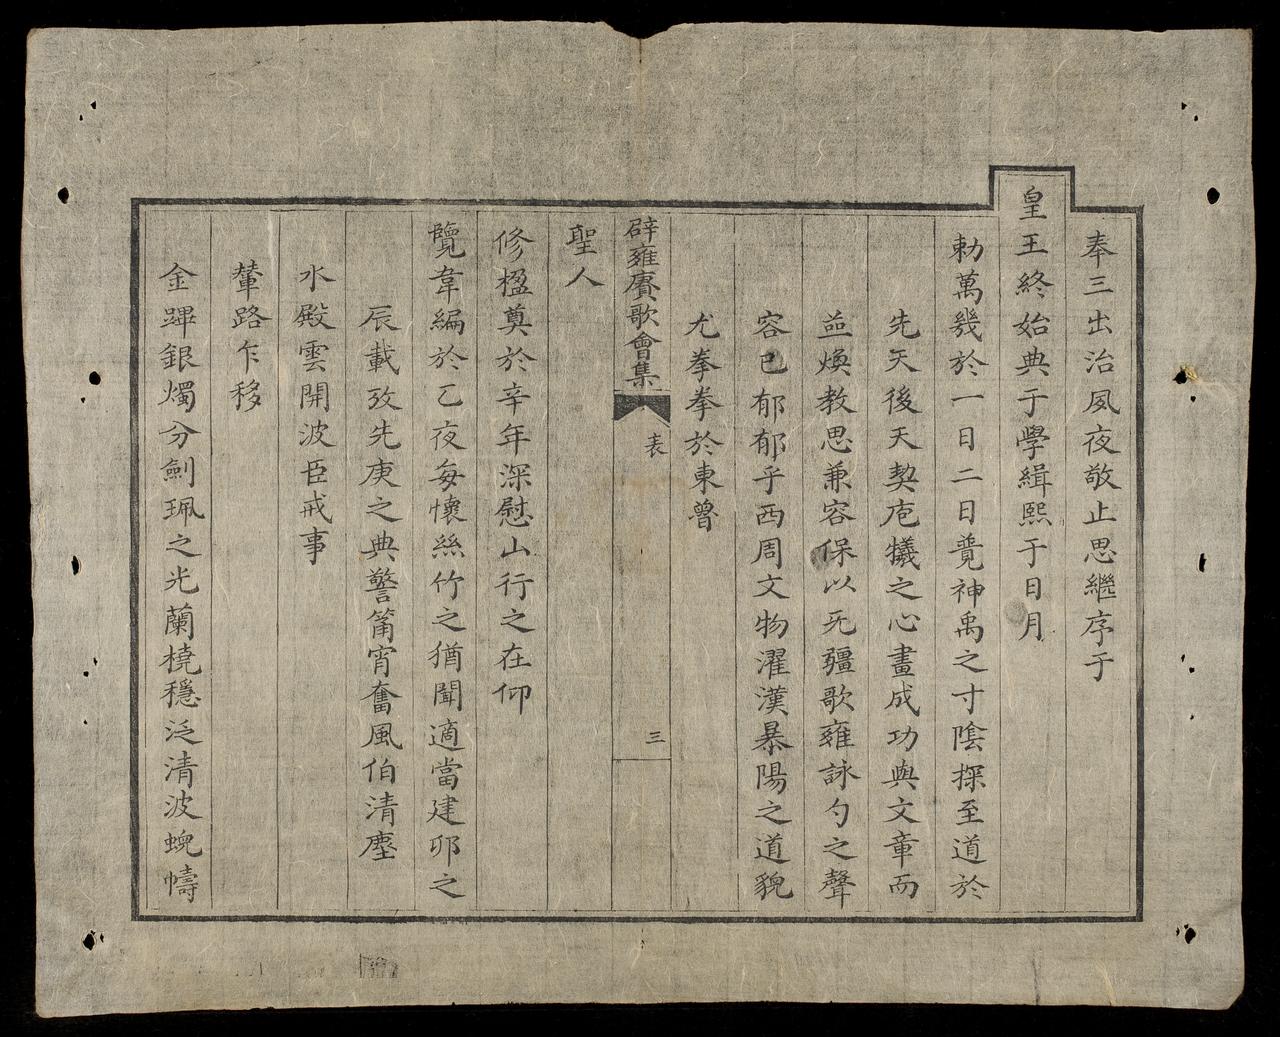 奉三出治夙夜敬止思繼序于
皇王終始典于學緝熙于日月
勑萬幾於一日二日覺神禹之寸陰探至道於
先天後天契庖犧之心畫成功與文章而
並煥教思兼容保以无疆歌雍詠勺之聲
容已郁郁乎西周文物濯漢暴陽之道貌
尤拳拳於東魯
辟雍賡歌會集
表
三
聖人
修楹奠於辛年深慰山行之在仰
覽韋編於乙夜每懷絲竹之猶聞適當建卯之
辰載攷先庚之典警籥宵奮風伯清塵
水殿雲開波臣戒事
輦路乍移
金蹕銀燭分劍珮之光蘭橈穩泛清波蜺幬